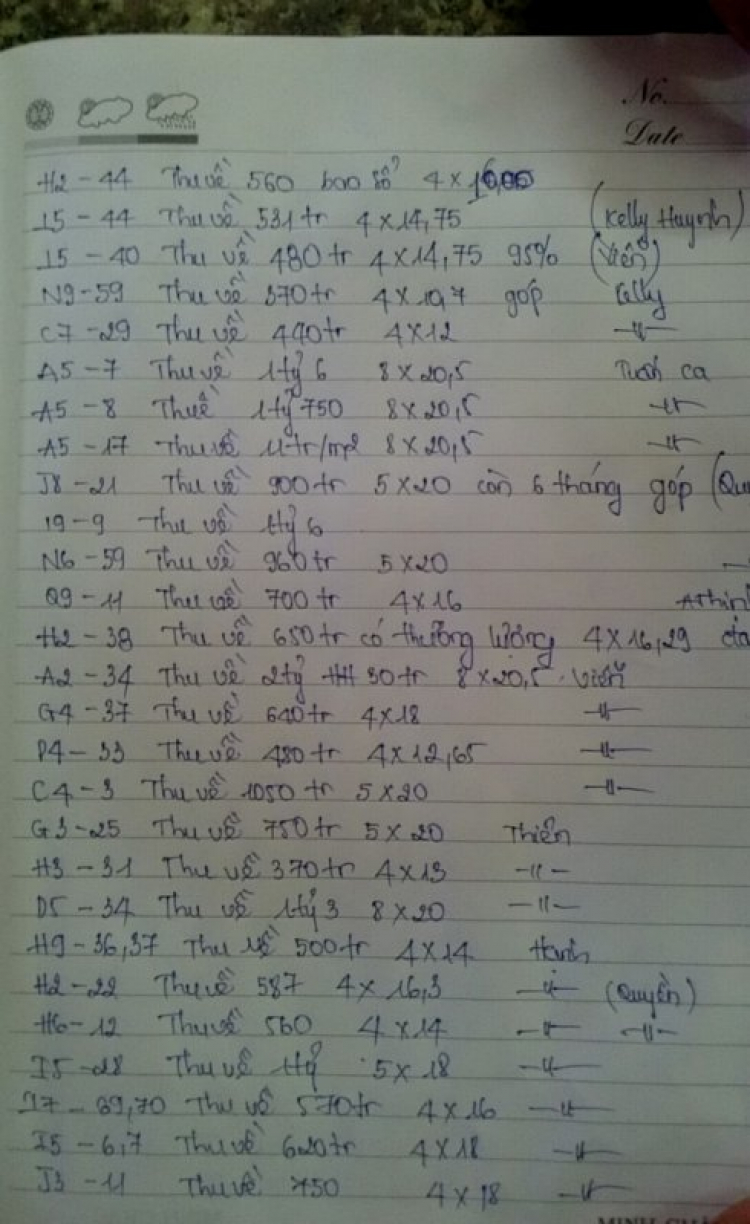 No.
Date
H2 - 44 Thu về 560 bao sổ 4 x
I5 - 44 Thu về 531 tr 4 x 14,75 (Kelly Huỳnh)
I5 - 40 Thu về 480 tr 4 x 14,75 95% (Viên)
N9 - 59 Thu về 370 tr 4 x 10,7 góp Kelly
C7 - 29 Thu về 440 tr 4 x 12 -〃-
A5 - 7 Thu về 1 tỷ 6 8 x 20,5 Tuấn ca
A5 - 8 Thuề 1 tỷ 750 8 x 20,5 -〃-
A5 - 17 Thu về 11 tr/m2 8 x 20,5 -〃-
J8 - 21 Thu về 900 tr 5 x 20 còn 6 tháng góp (Qu
19 - 9 Thu về 1 tỷ 6
N6 - 59 Thu về 960 tr 5 x 20
Q9 - 11 Thu về 700 tr 4 x 16
H2 - 38 Thu về 650 tr có thương lượng 4 x 16,29
A2 - 34 Thu về 2 tỷ 30 tr 8 x 20,5 Viên
G4 - 37 Thu về 640 tr 4 x 18 -〃-
P4 - 33 Thu về 480 tr 4 x 12,65 -〃-
C4 - 3 Thu về 1050 tr 5 x 20 -〃-
G3 - 25 Thu về 750 tr 5 x 20 Thiên
H3 - 31 Thu về 370 tr 4 x 13 -〃-
D5 - 34 Thu về 1 tỷ 3 8 x 20 -〃-
H9 - 36,37 Thu về 500 tr 4 x 14 Hạnh
H2 - 22 Thu về 587 4 x 16,3 -〃- (Quyền)
H6 - 12 Thu về 560 4 x 14 -〃- -〃-
I5 - 28 Thu về 1 tỷ 5 x 18 -〃-
I7 - 69,70 Thu về 570 tr 4 x 16 -〃-
I5 - 6,7 Thu về 620 tr 4 x 18 -〃-
J3 - 11 Thu về 750 4 x 18 -〃-